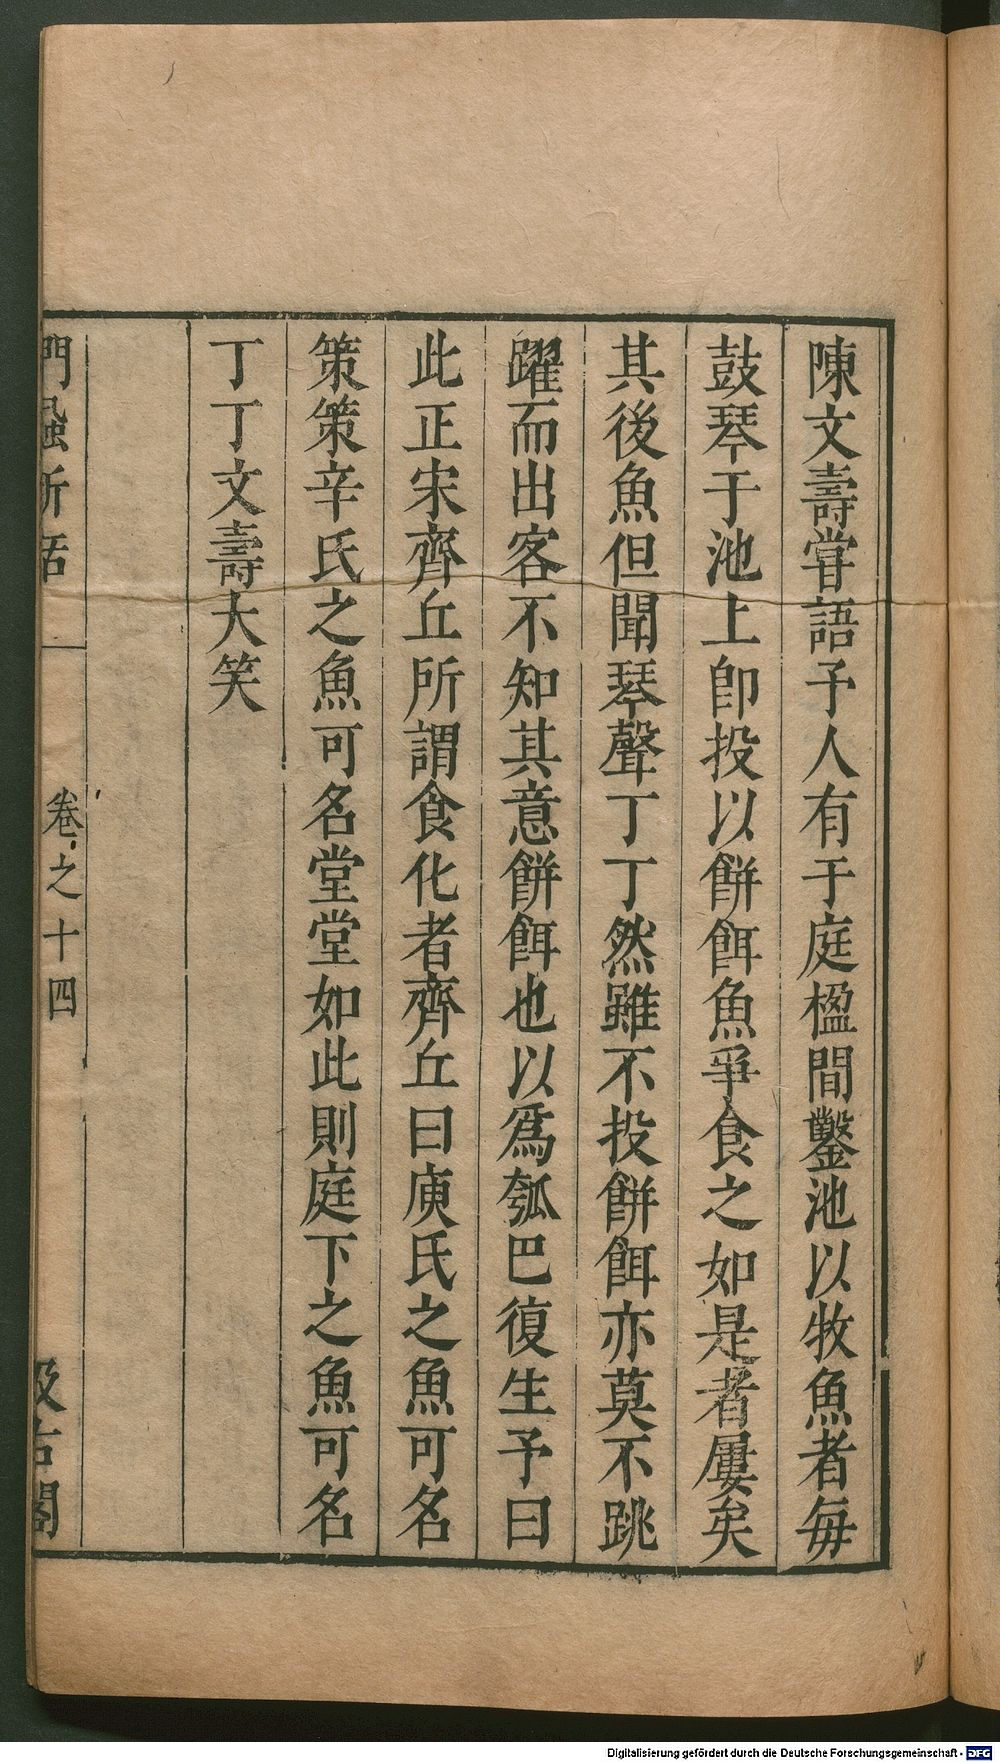 陳文壽嘗語予人有于庭楹間鑿池以牧魚者每
鼓琴于池上卽投以餅餌魚爭食之如是者屢矣
其後魚但聞琴聲丁丁然雖不投餅餌亦莫不跳
躍而出客不知其意餅餌也以爲瓠巴復生予曰
此正宋齊丘所謂食化者齊丘曰庚氏之魚可名
策策辛氏之魚可名堂堂如此則庭下之魚可名
丁丁文壽大笑
門蝨新話
卷之十四
汲古閣
Digitalisierung gefördert durch die Deutsche Forschungsgemeinschaft - DFG